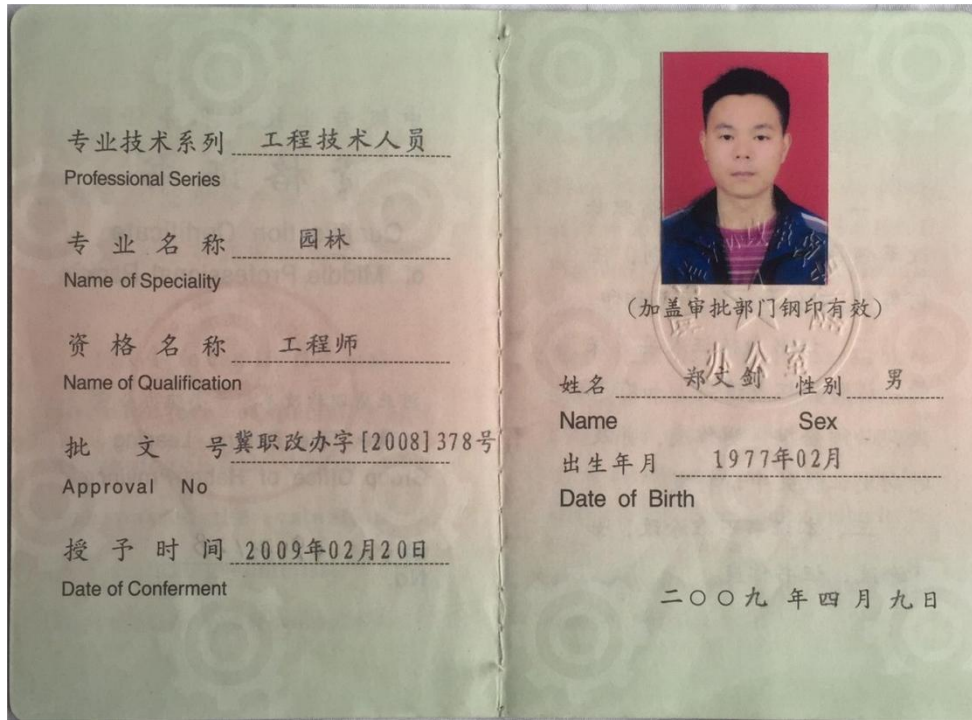 专业技术系列 工程技术人员
Professional Series
专业名称 园林
Name of Speciality
资格名称 工程师
Name of Qualification
批文号 冀职改办字[2008]378号
Approval No
授予时间 2009年02月20日
Date of Conferment
No.
(加盖审批部门钢印有效)
办公室
姓名 郑文剑 性别 男
Name Sex
出生年月 1977年02月
Date of Birth
二〇〇九 年 四 月 九 日